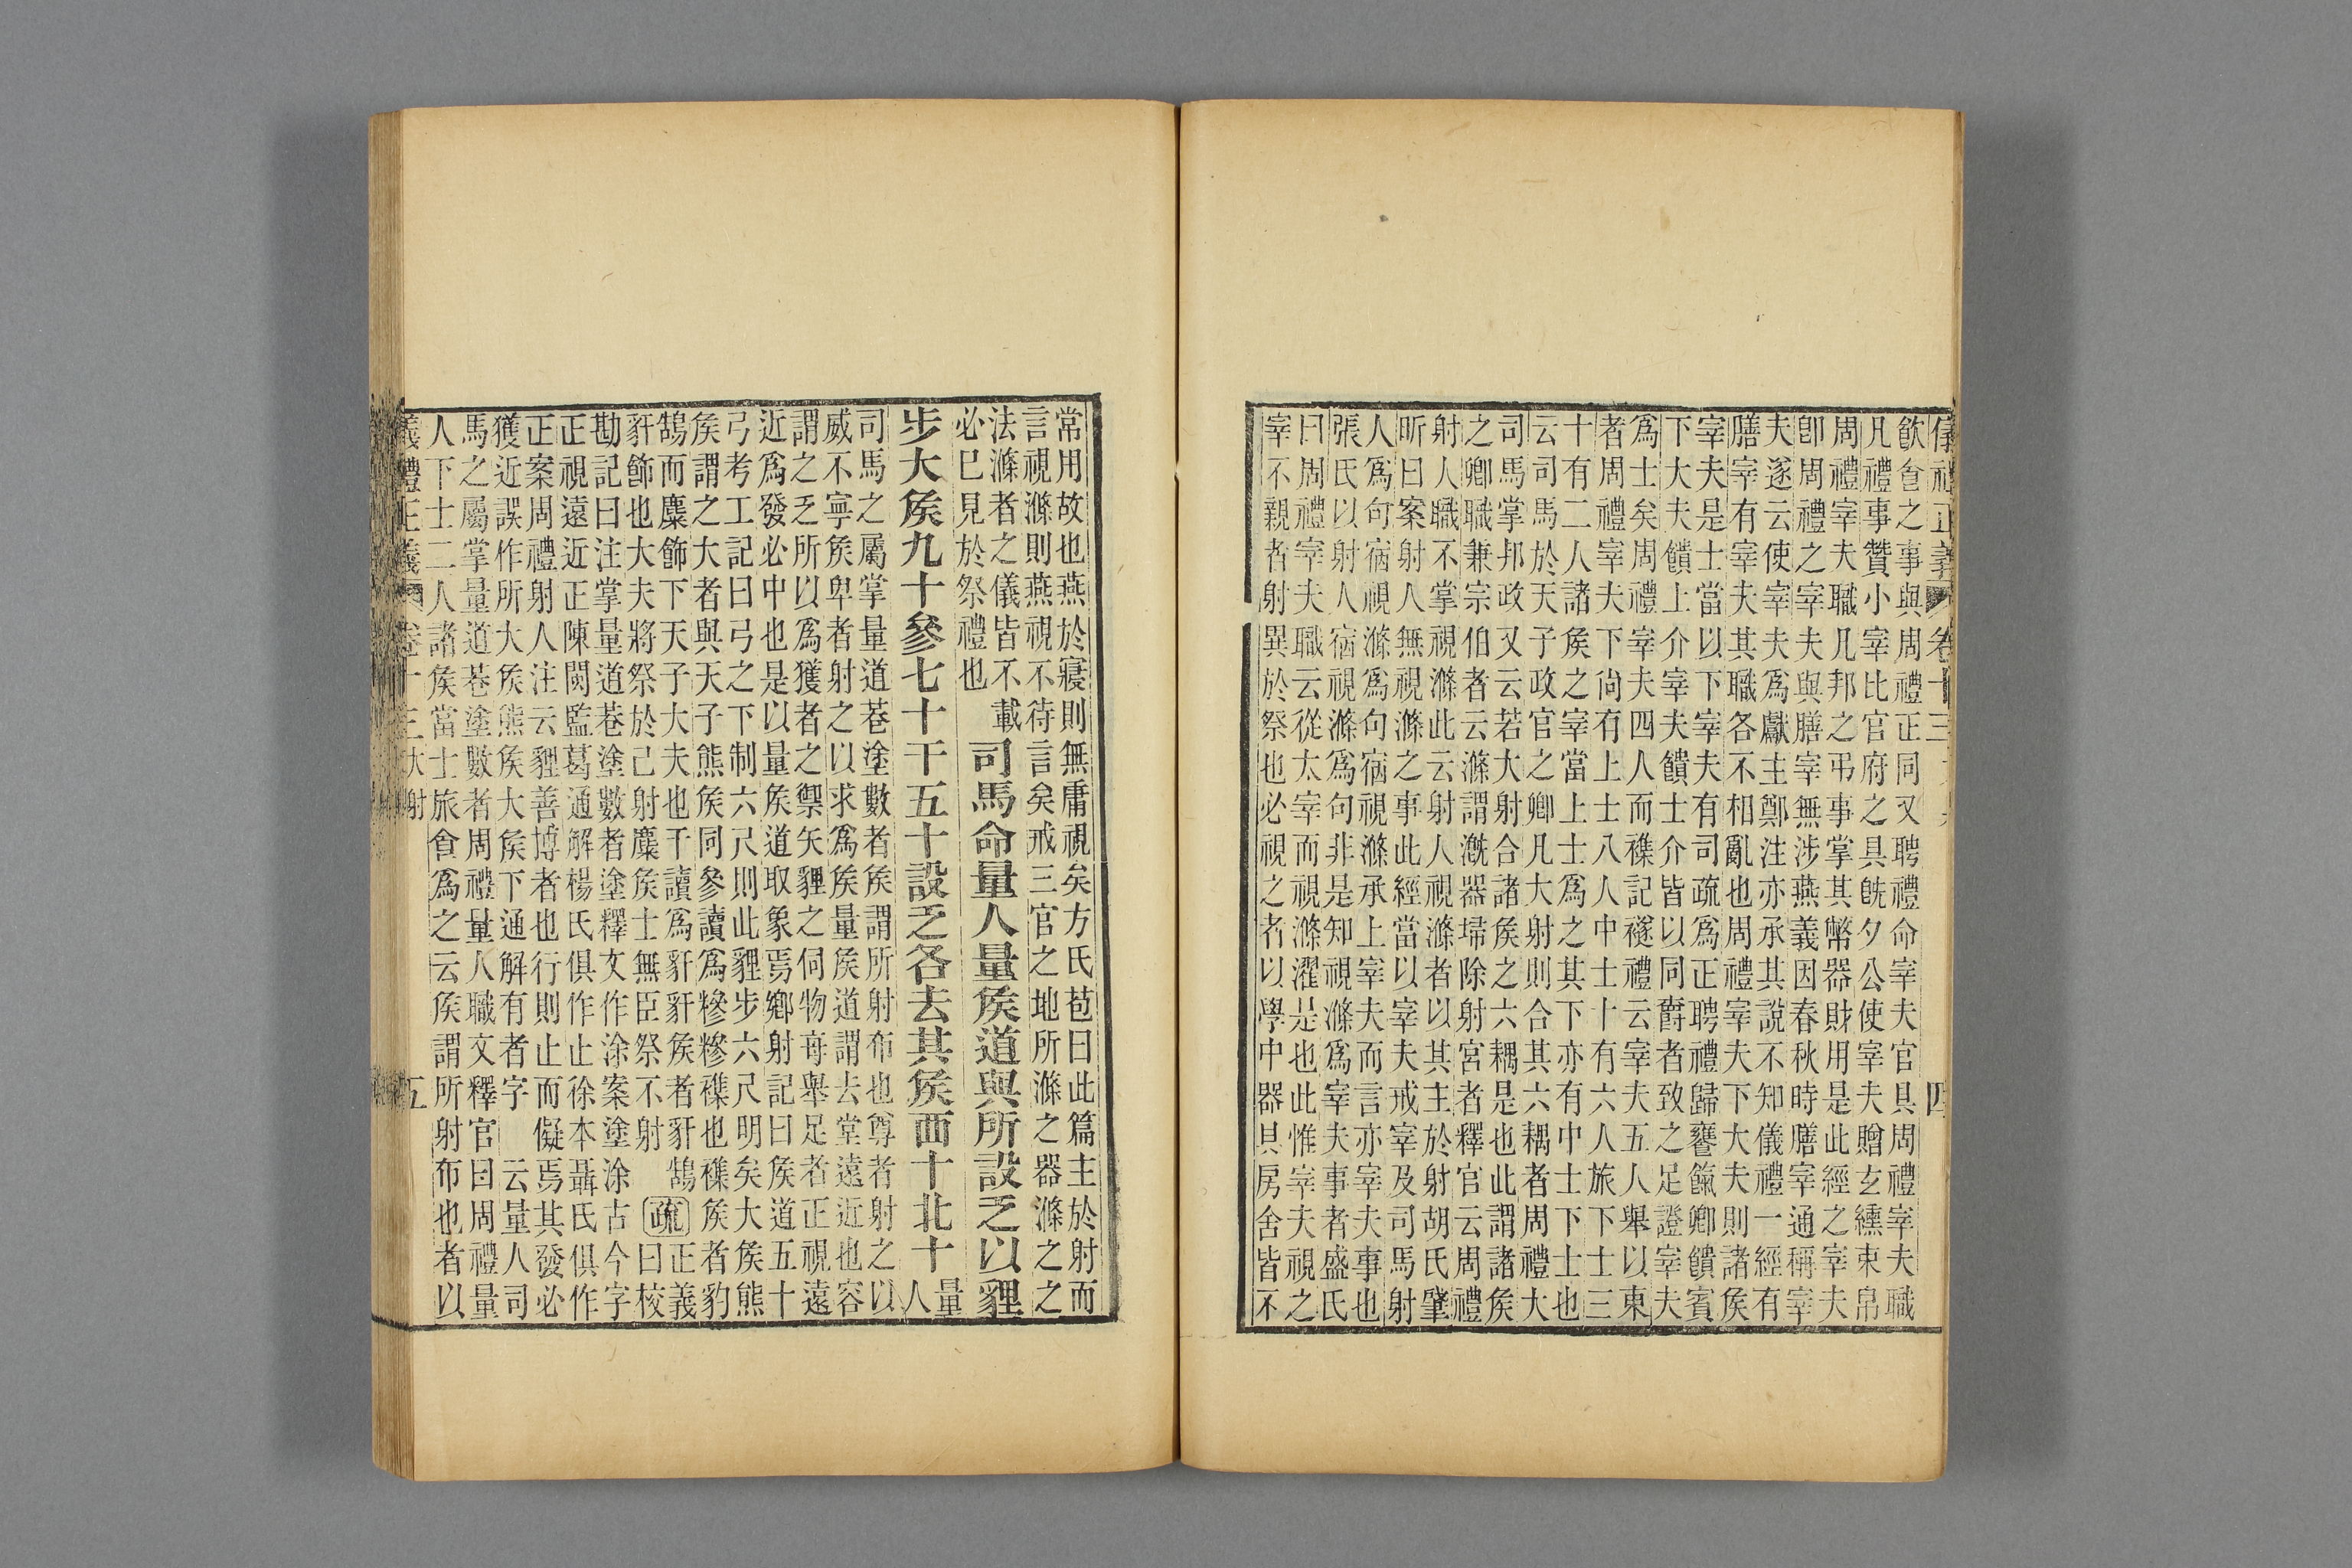 儀禮正義 卷十三 四
飮食之事與周禮正同又聘禮命宰夫官具周禮宰夫職
凡禮事贊小宰比官府之具旣夕公使宰夫贈玄纁束帛
周禮宰夫職凡邦之弔事掌其幣器財用是此經之宰夫
卽周禮之宰夫與膳宰無涉燕義因春秋時膳宰通稱宰
夫遂云使宰夫爲獻主鄭注亦承其說不知儀禮一經有
膳宰有宰夫其職各不相亂也周禮宰夫下大夫則諸矦
宰夫是士當以下宰夫有司疏爲正聘禮歸饔餼卿饋賓
下大夫饋上介宰夫饋士介皆以同爵者致之足證宰夫
爲士矣周禮宰夫四人而襍記襚禮云宰夫五人舉以東
者周禮宰夫下尙有上士八人中士十有六人旅下士三
十有二人諸矦之宰當上士爲之其下亦有中士下士也
云司馬於天子政官之卿凡大射則合其六耦者周禮大
司馬掌邦政又云若大射合諸矦之六耦是也此謂諸矦
之卿職兼宗伯者云滌謂漑器埽除射宮者釋官云周禮
射人職不掌視滌此云射人視滌者以其主於射胡氏肇
昕曰案射人無視滌之事此經當以宰夫戒宰及司馬射
人爲句宿視滌爲句宿視滌承上宰夫而言亦宰夫事也
張氏以射人宿視滌爲句非是知視滌爲宰夫事者盛氏
曰周禮宰夫職云從太宰而視滌濯是也此惟宰夫視之
宰不親者射異於祭也必視之者以學中器具房舍皆不
常用故也燕於寢則無庸視矣方氏苞曰此篇主於射而
言視滌則燕視不待言矣戒三官之地所滌之器滌之之
法滌者之儀皆不載
必已見於祭禮也
司馬命量人量矦道與所設乏以貍
步大矦九十參七十干五十設乏各去其矦西十北十
量
人
司馬之屬掌量道巷塗數者矦謂所射布也尊者射之以
威不寧矦卑者射之以求爲矦量矦道謂去堂遠近也容
謂之乏所以爲獲者之禦矢貍之伺物每舉足者正視遠
近爲發必中也是以量矦道取象焉鄉射記曰矦道五十
弓考工記曰弓之下制六尺則此貍步六尺明矣大矦熊
矦謂之大者與天子熊矦同參讀爲糝糝襍也襍矦者豹
鵠而麋飾下天子大夫也干讀爲豻豻矦者豻鵠
豻飾也大夫將祭於己射麋矦士無臣祭不射
疏
正義
曰校
勘記曰注掌量道巷塗數者塗釋文作涂案塗涂古今字
正視遠近正陳閩監葛通解楊氏俱作止徐本聶氏俱作
正案周禮射人注云貍善博者也行則止而儗焉其發必
獲近誤作所大矦熊矦大矦下通解有者字 云量人司
馬之屬掌量道巷塗數者周禮量人職文釋官曰周禮量
人下士二人諸矦當士旅食爲之云矦謂所射布也者以
儀禮正義 卷十三大射 五